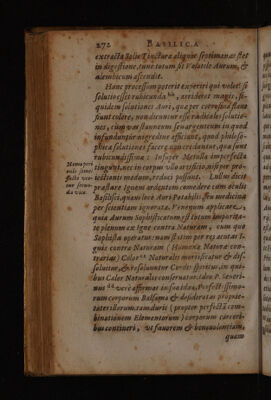 272 BASILICA
extracta Solis Tinctura aliquis septimanas stet
in digestione, tunc totum fit Volatile Aurum, &
alembicum ascendit.
Hanc processum poterit experiri qui volet: si
solutio esset rubicunda, arrideret magis, si-
quidem solutiones Auri, quæ per corrosiva
fiunt colore, non dicuntur esse radicales solutio-
nes, cum vas stanneum seu argenteum in quod
infunduntur nigredine efficiunt, quod philoso-
phicæ solutiones facere non credantur, quæ sunt
rubicundissimæ: Insuper Metalla imperfecta
tingunt, nec in corpus ullo artificio, nisi per pro-
iectionis modum, reduci possunt. Lullus dicit
præstare Ignem ardentem comedere cum oculis
Basilisci, quam loco Auri Potabilis seu medicina
per scientiam ignorata, Venenum applicare,
quia Aurum Sophisticatum est totum imparita-
te plenum ac Igne contra Naturam, cum quo
Sophista operatur: nam fit istum per res acutas &
ignis contra Naturam (Humanæ Naturæ con-
trarias) Calor Naturalis mortificatur & dis-
solvitur, & resolvuntur Cordis spiritus, in qui-
bus Calor Naturalis conservatur: idem P. Severi-
nus vero affirmat in suo Idea, Perfectissimo-
rum corporum Balsama & desideratas proprie-
tates illorum, tam duris (propter perfectā com-
binationem Elementorum) corporum carceri-
bus contineri, ut favorem & benevolentiam,
quam